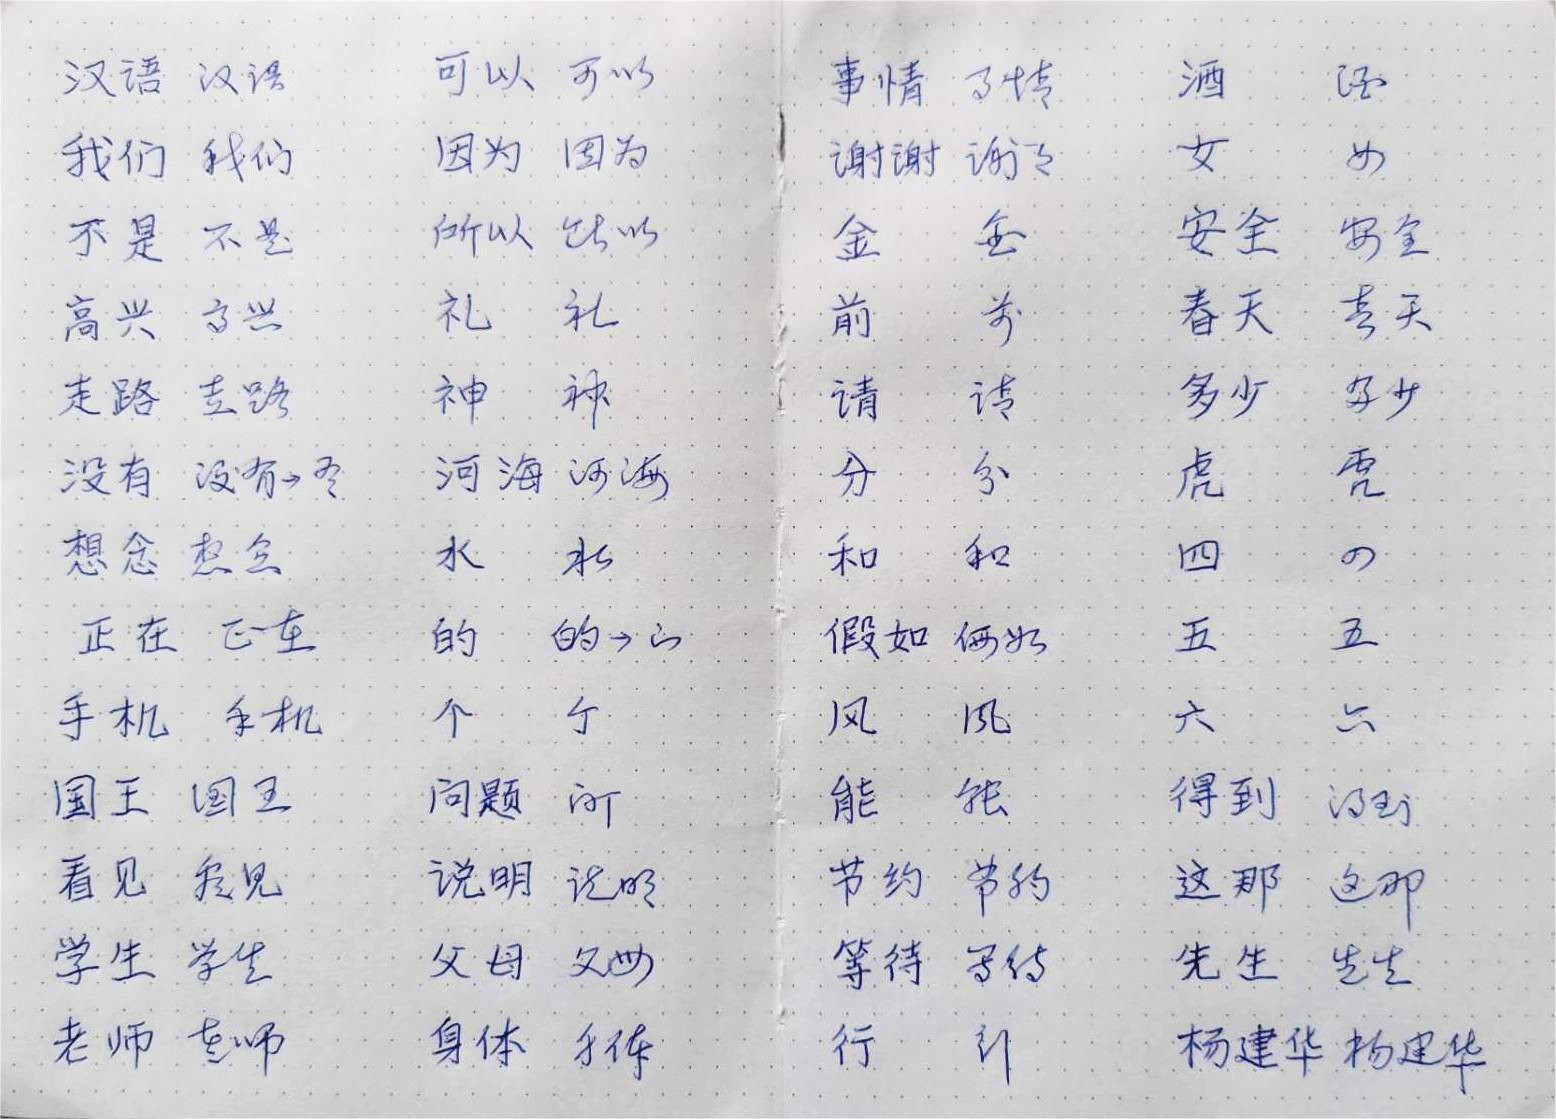 汉语 汉语 可以 可以 事情 事情 酒 酒
我们 我们 因为 因为 谢谢 谢谢 女 女
不是 不是 所以 所以 金 金 安全 安全
高兴 高兴 礼 礼 前 前 春天 春天
走路 走路 神 神 请 请 多少 多少
没有 没有→有 河海 河海 分 分 虎 虎
想念 想念 水 水 和 和 四 四
正在 正在 的 的→的 假如 假如 五 五
手机 手机 个 个 风 风 六 六
国王 国王 问题 问 能 能 得到 得到
看见 看见 说明 说明 节约 节约 这那 这那
学生 学生 父母 父母 等待 等待 先生 先生
老师 老师 身体 身体 行 行 杨建华 杨建华